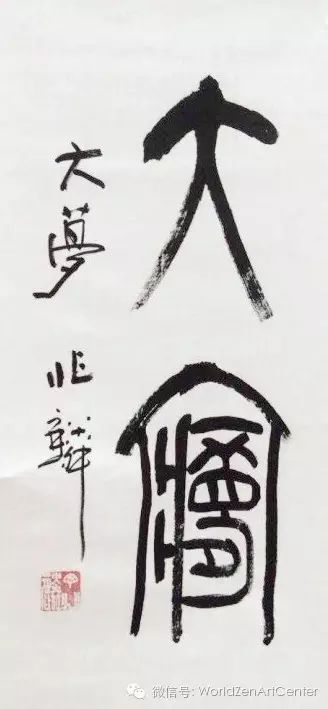 大㝱
大夢
微信号: WorldZenArtCenter